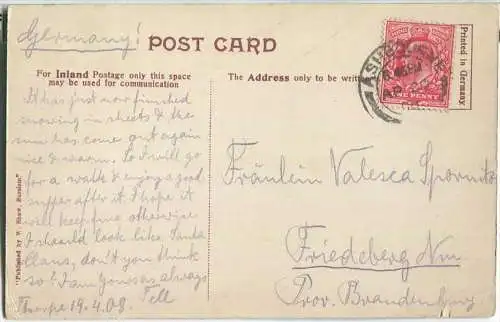 Germany!
POST CARD
For Inland Postage only this space
may be used for communication
The Address only to be writ
Printed in Germany
"Published by W. Shaw, Burslem"
It has just now finished
snowing in sheets & the
sun has come out again
nice & warm. So I will go
for a walk & enjoy a good
supper after it. I hope it
will keep fine otherwise
I should look like Santa
Claus, don't you think
so? I am yours as always
Thorpe 19.4.08. Tell
Fräulein Valesca
Friedeberg Nm
Prov. Brandenburg